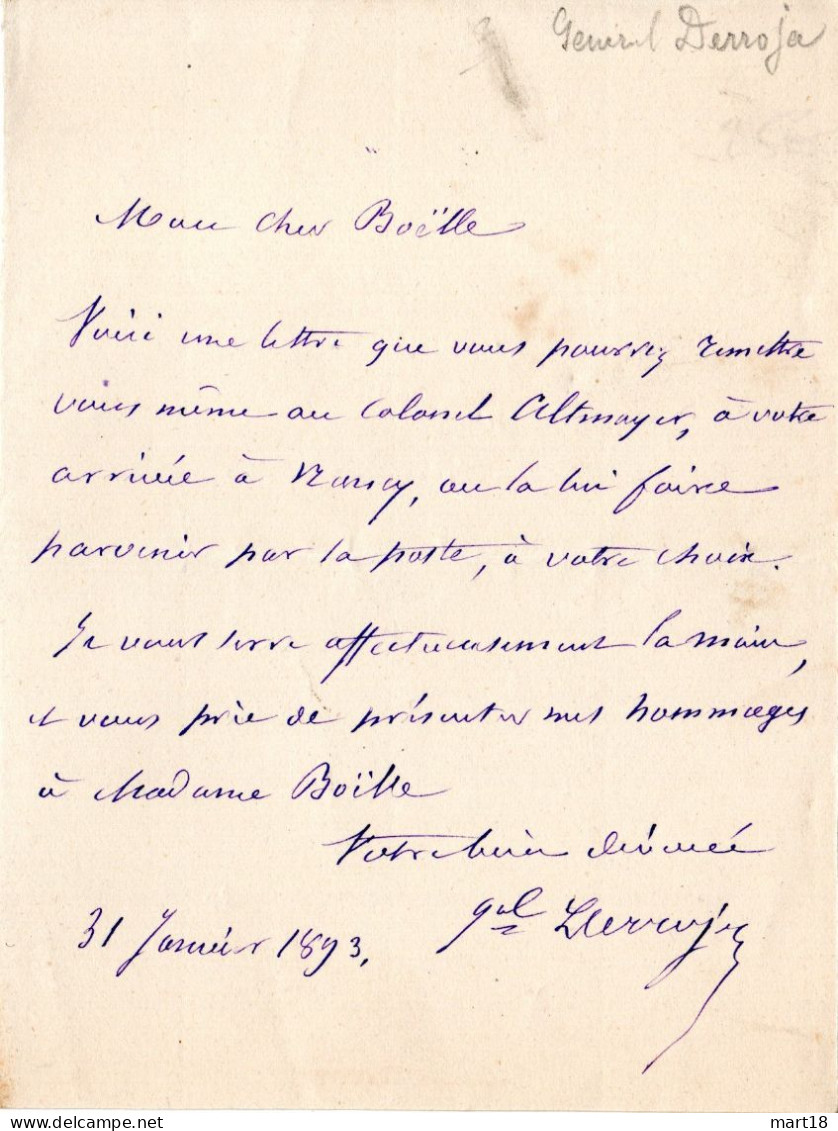 Général Derroja
Mon cher Boëlle
Voici une lettre que vous pourrez remettre
vous même au Colonel Altmayer, à votre
arrivée à Nancy, ou la lui faire
parvenir par la poste, à votre choix.
Je vous serre affectueusement la main,
et vous prie de présenter mes hommages
à Madame Boëlle
Votre bien dévoué
gal Derroja
31 Janvier 1893.
mart18